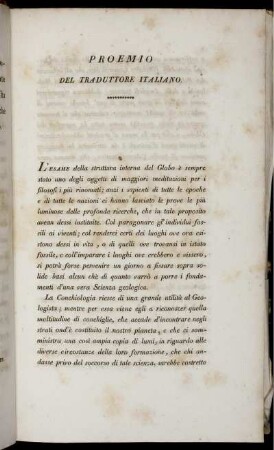 PROEMIO
DEL TRADUTTORE ITALIANO.
L'ESAME della struttura interna del Globo è sempre
stato uno degli oggetti di maggiori meditazioni per i
filosofi i più rinomati; anzi i sapienti di tutte le epoche
e di tutte le nazioni ci hanno lasciato le prove le più
luminose delle profonde ricerche, che in tale proposito
aveano dessi instituite. Col paragonare gl'individui fos-
sili ai viventi; col renderci certi dei luoghi ove ora esi-
stono dessi in vita, e di quelli ove trovansi in istato
fossile, e coll'imparare i luoghi ove crebbero e vissero,
si potrà forse pervenire un giorno a fissare sopra so-
lide basi alcun chè di quanto varrà a porre i fonda-
menti d'una vera Scienza geologica.
La Conchiologia riesce di una grande utilità al Geo-
logista; mentre per essa viene egli a riconoscer quella
moltitudine di conchiglie, che accade d'incontrare negli
strati ond'è costituito il nostro pianeta, e che ci som-
ministra una così ampia copia di lumi, in riguardo alle
diverse circostanze della loro formazione, che chi an-
dasse privo del soccorso di tale scienza, sarebbe costretto